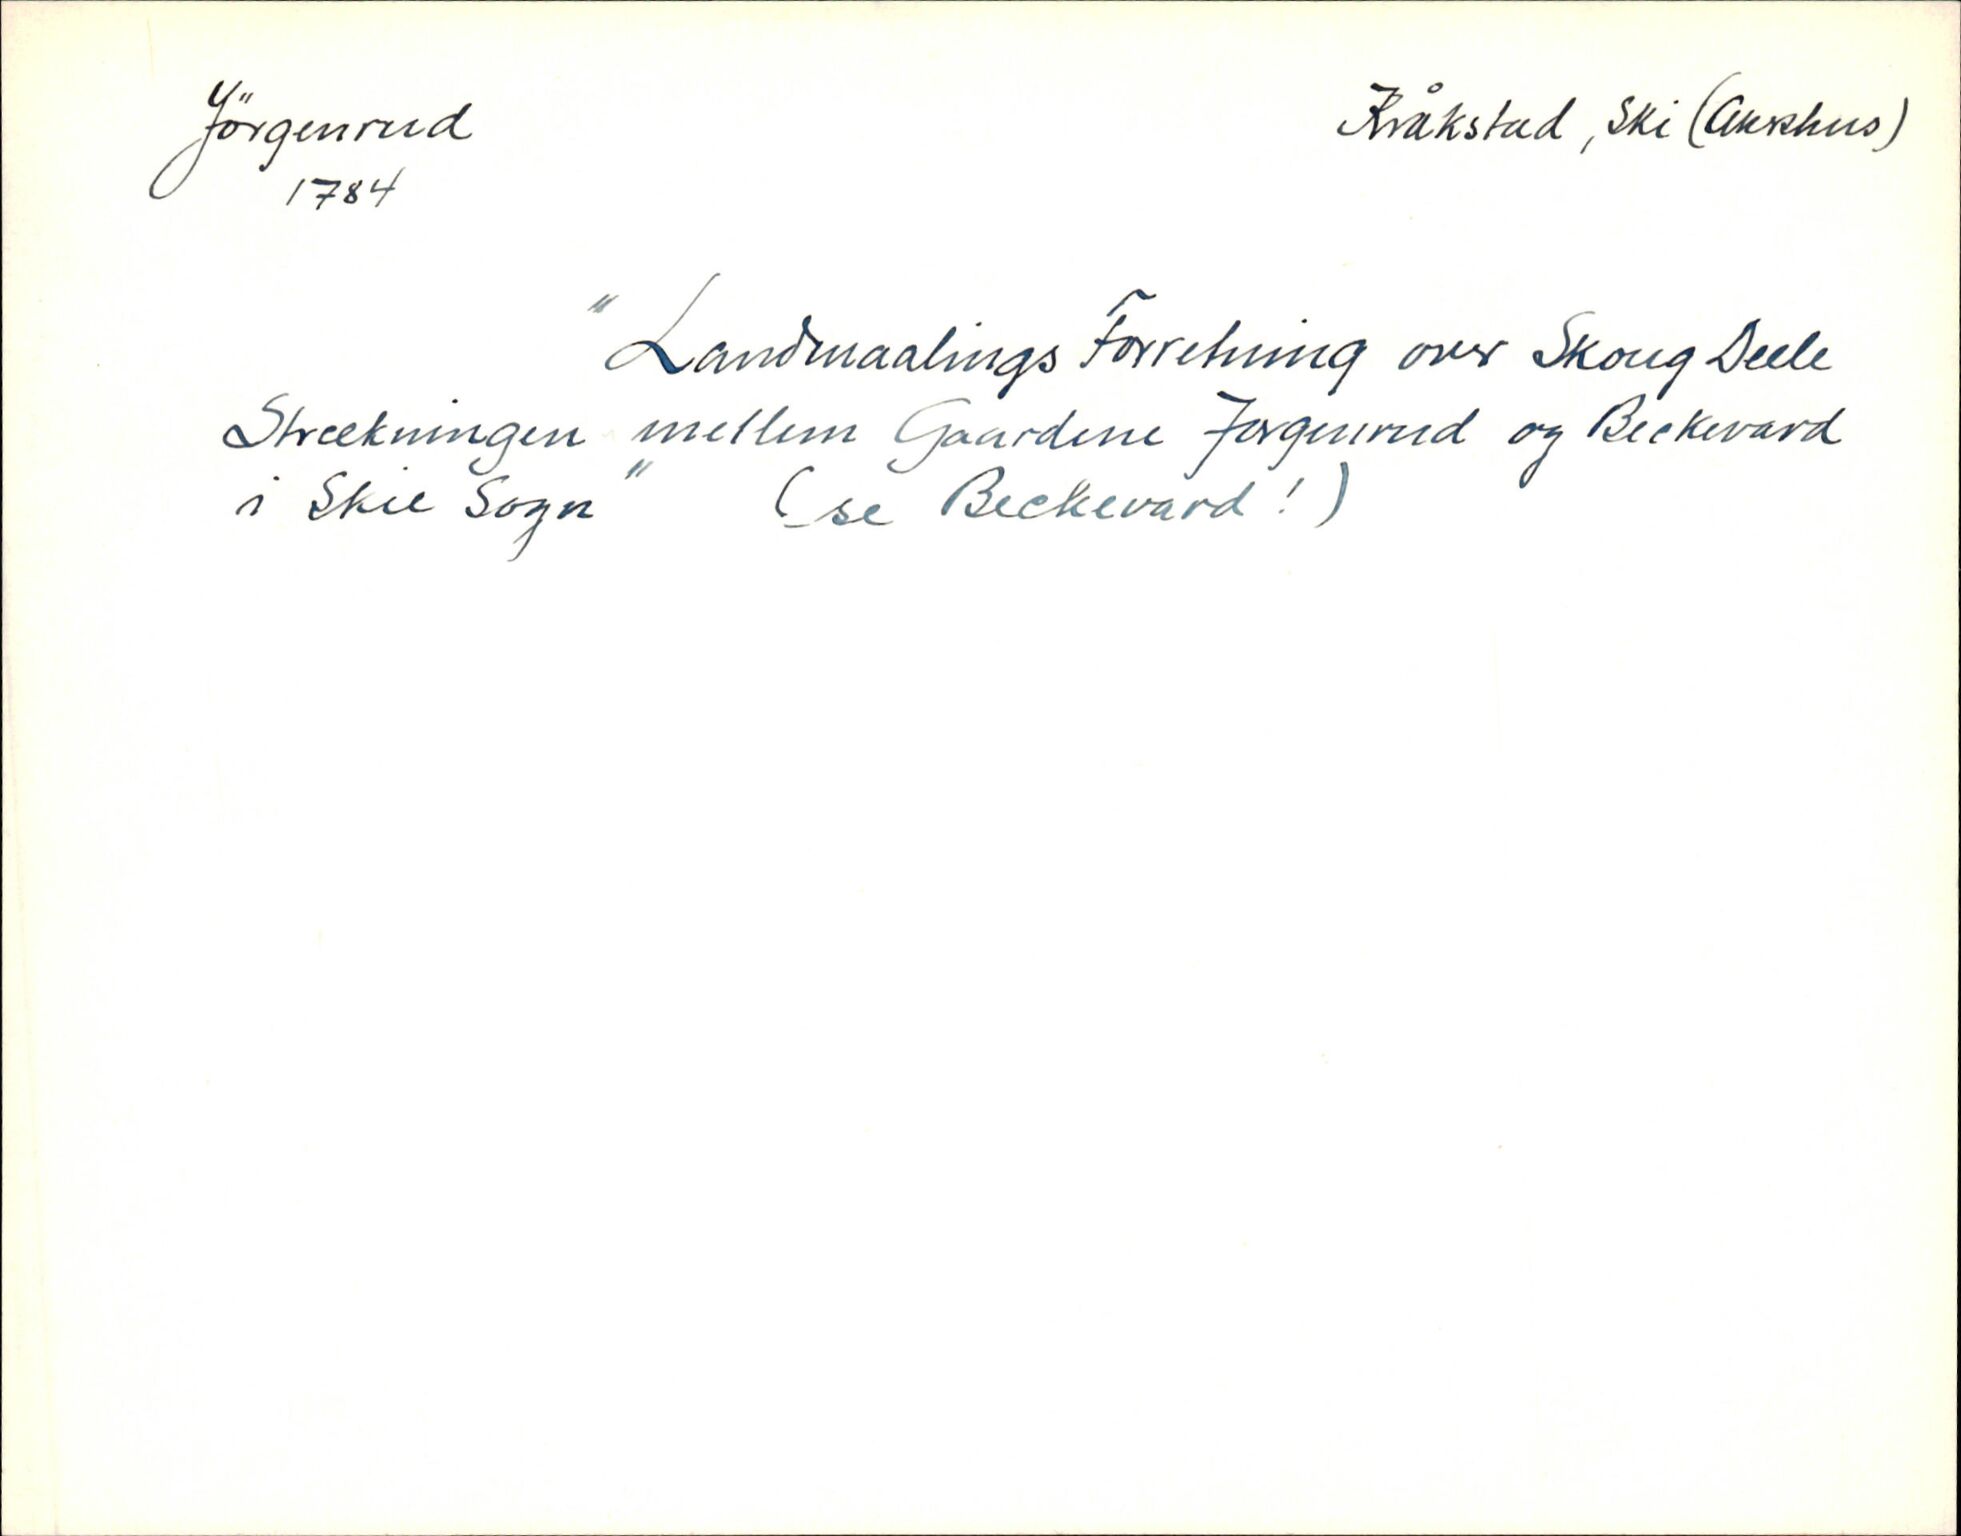 Jörgenrud
Kråkstad, Ski (Akershus)
1784
"Landmaalings Forretning over Skoug Deele
Streekningen mellem Gaardene Jorgenrud og Beckevard
i Skie Sogn" (se Beckevard!)